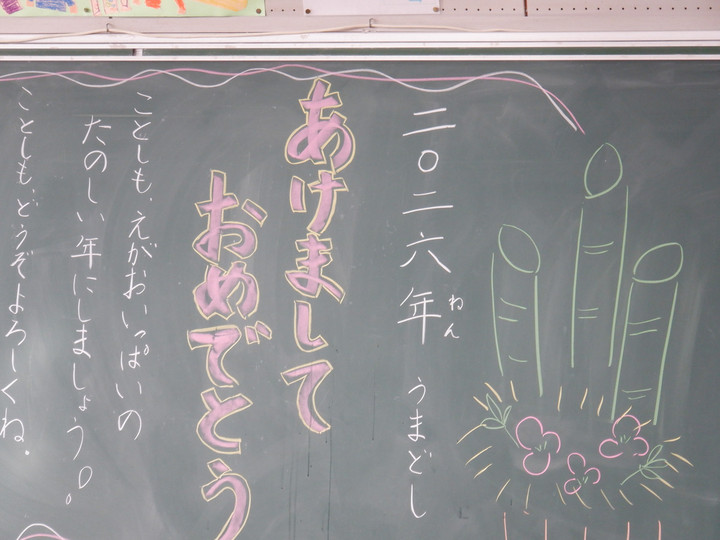 二〇二六年 うまどし
ねん
あけまして
おめでとう
ことしも、えがおいっぱいの
たのしい年にしましょう。
ことしも、どうぞよろしくね。